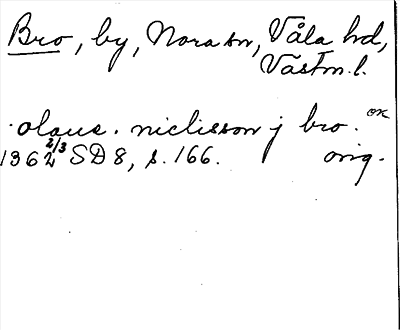 Bro, by, Nora sn, Våla hd,
Västm. l.
·olaus· niclisson j bro. on
1362 2/3 SD 8, s. 166. orig.